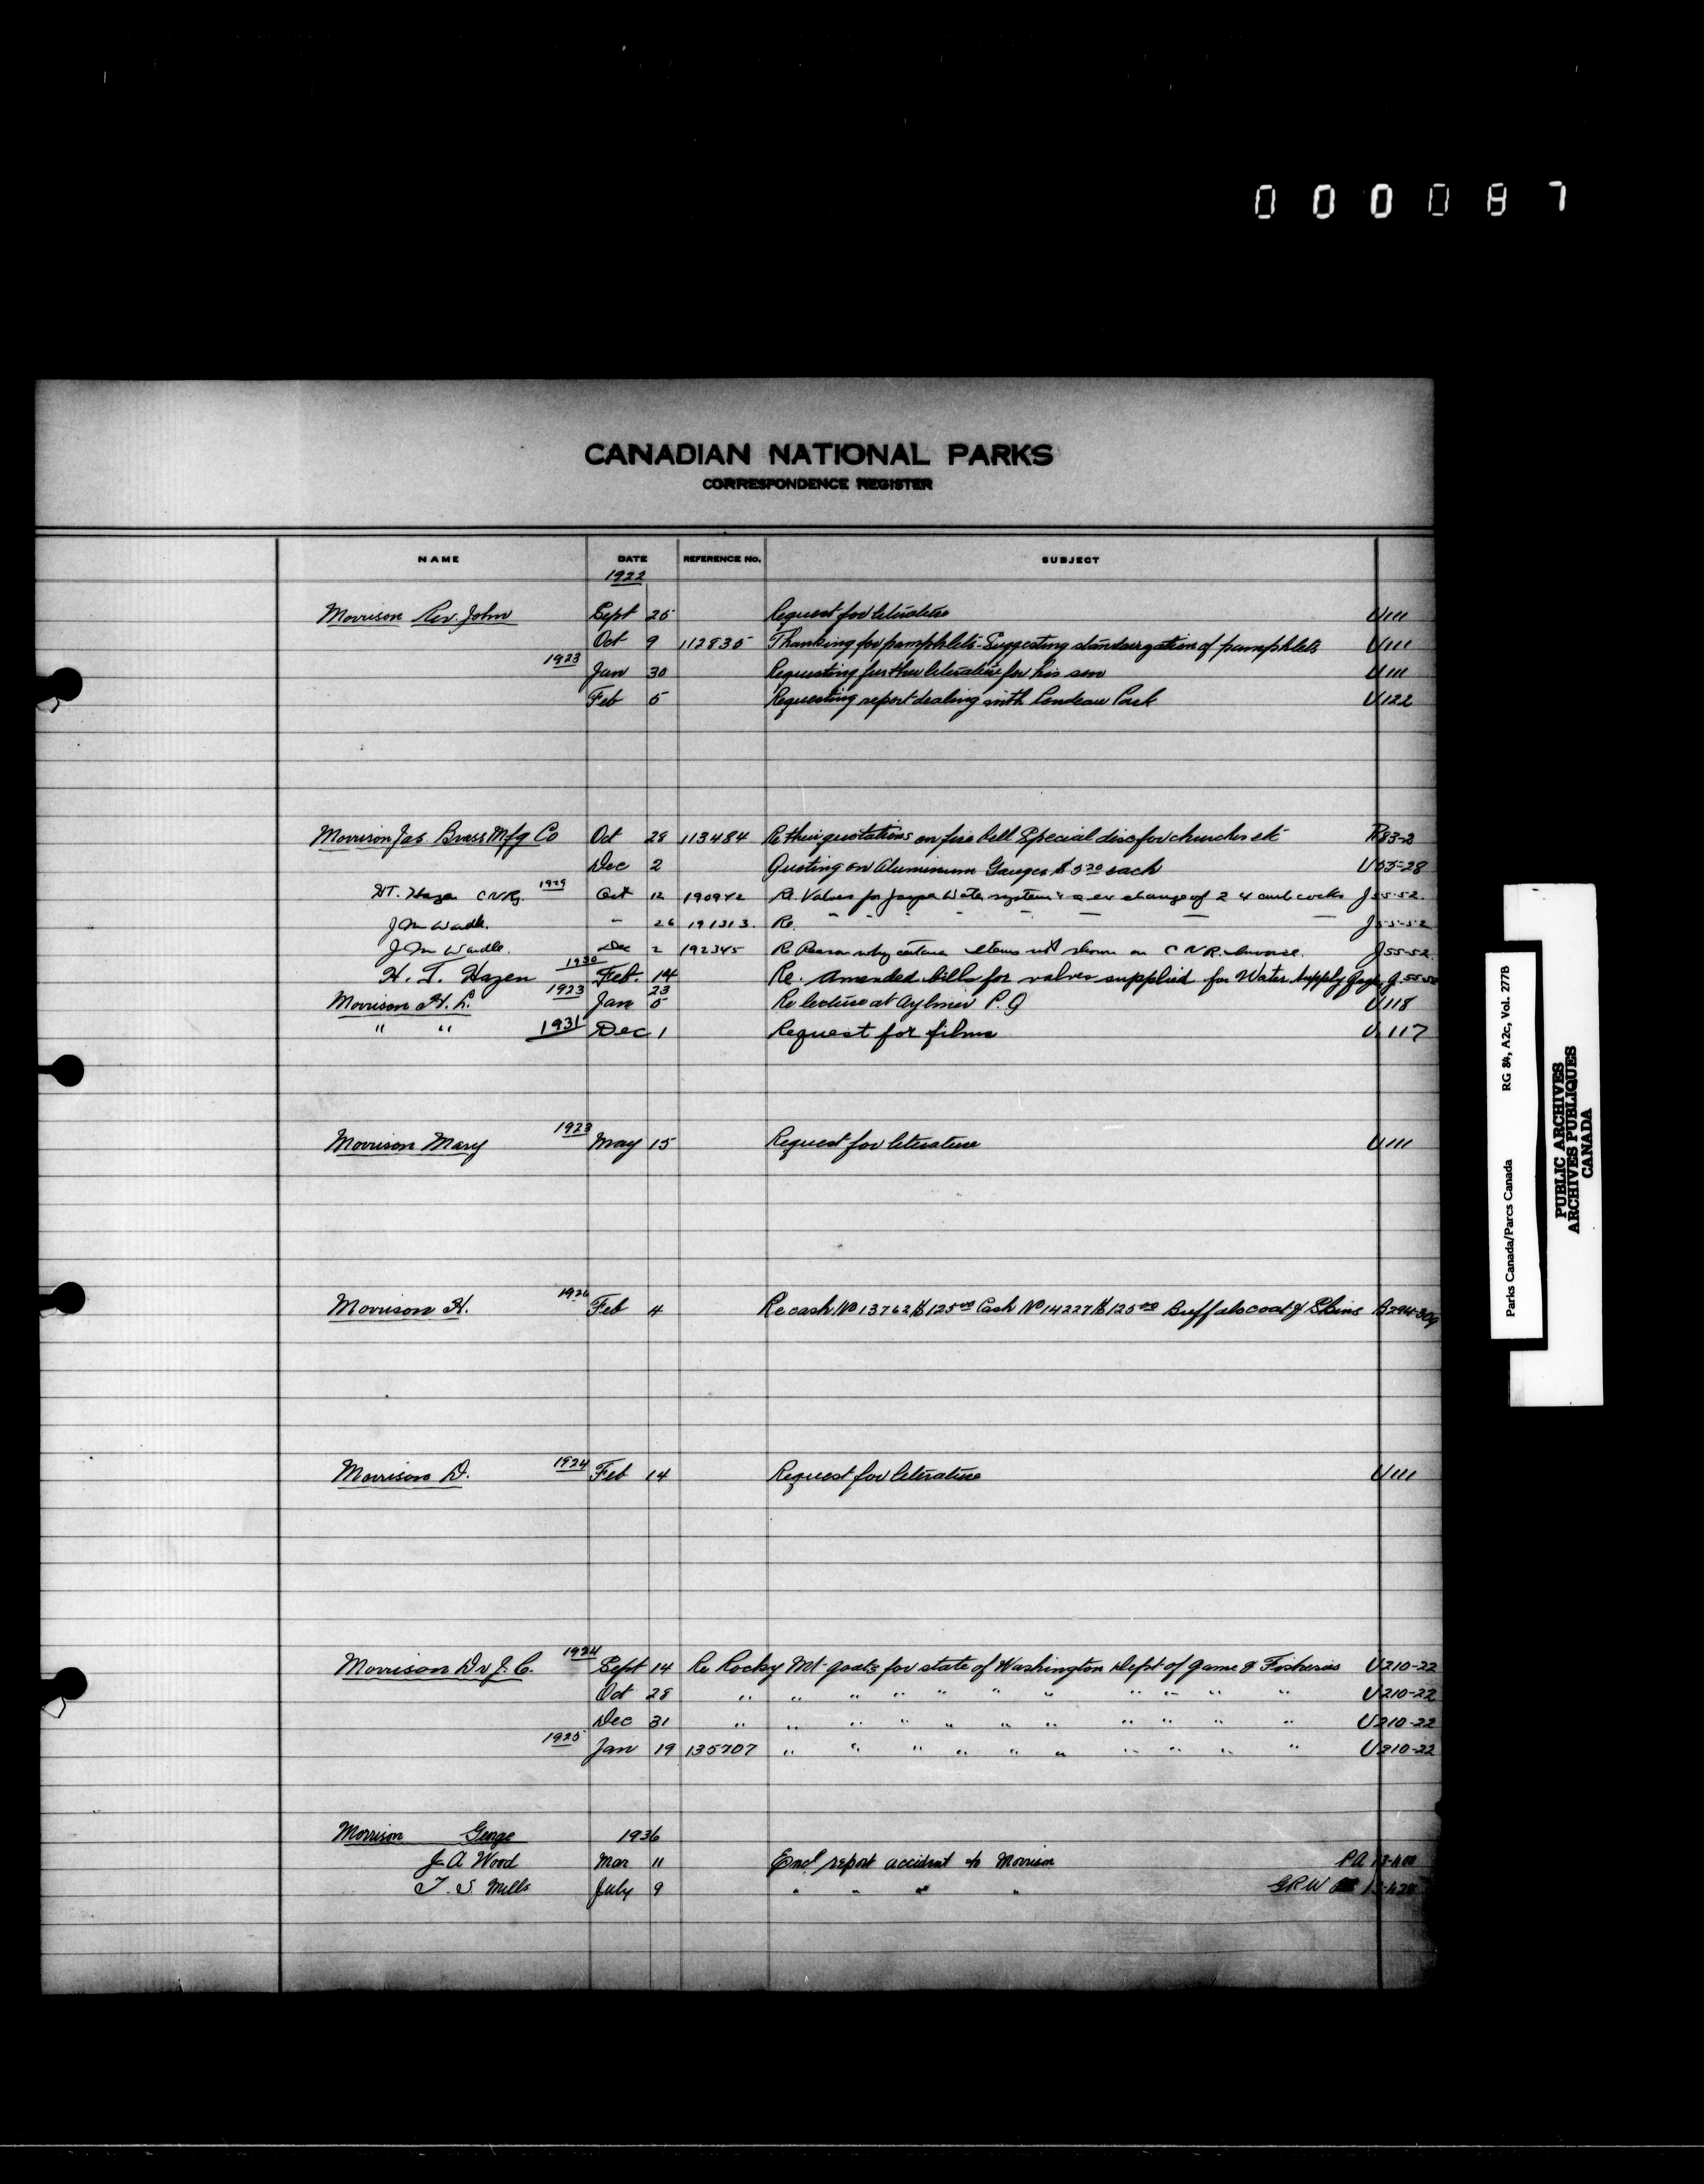 0 0 0 0 8 7
CANADIAN NATIONAL PARKS
CORRESPONDENCE REGISTER
NAME DATE REFERENCE No. SUBJECT
1922
Morrison Rev. John Sept 25 Request for literature U111
Oct 9 112835 Thanking for pamphlets - Suggesting of pamphlets U111
1923 Jan 30 Requesting further literature for his son U111
Feb 5 Requesting report dealing with Rondeau Park U122
Morrison Jas. Brass Mfg Co Oct 28 113484 Re their quotations on fire bell Special disc for churches etc R83-2
Dec 2 Quoting on Aluminum Gauges $ each U55-28
H.T. Hazen CNRy. 1929 Oct 12 190942 Re. Valves for Jasper Water system & exchange of 24 curb cocks J55-52.
J M Wardle. " 26 191313. Re. " " " " J55-52
J M Wardle. Dec 2 192345 Re Reason why certain items not shown on C N R. Invoice. J55-52.
H. T. Hazen 1930 Feb. 14 Re. Amended bills for valves supplied for Water Supply J.55-52
Morrison H. L. 1923 Jan 23 5 Re lecture at Aylmer P.Q U118
" " 1931 Dec 1 Request for films U 117
Morrison Mary 1923 May 15 Request for literature U111
Morrison H. 1926 Feb 4 Re cash No 13762 $125 00 Cash No 14227 $125 00 Buffalo coat & Skins B294-309
Morrison D. 1924 Feb 14 Request for literature U111
Morrison Dr J. C. 1924 Sept 14 Re Rocky Mt. goats for state of Washington Dept of Game & Fisheries U210-22
Oct 28 " " " " " " " " " " " U210-22
Dec 31 " " " " " " " " " " " U210-22
1925 Jan 19 135707 " " " " " " " " " " U210-22
Morrison George 1936
J. A Wood Mar 11 Encl report accident to Morrison PA
T. S. Mills July 9 " " " " GRW
Parks Canada/Parcs Canada RG 84, A2c, Vol. 277B
PUBLIC ARCHIVES
ARCHIVES PUBLIQUES
CANADA